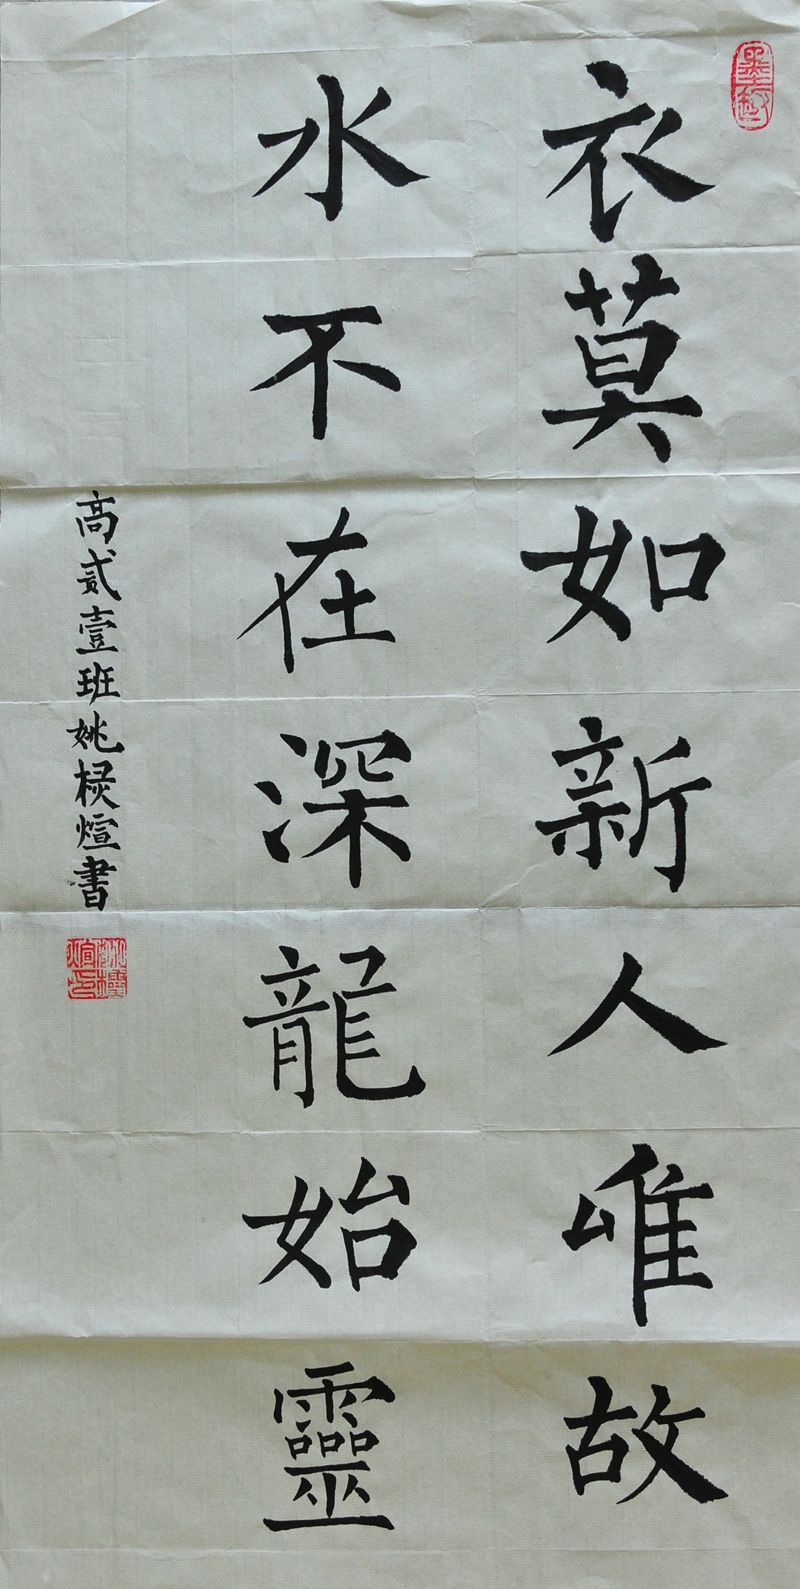 衣莫如新人唯故
水不在深龍始靈
高貳壹班姚棂煊書